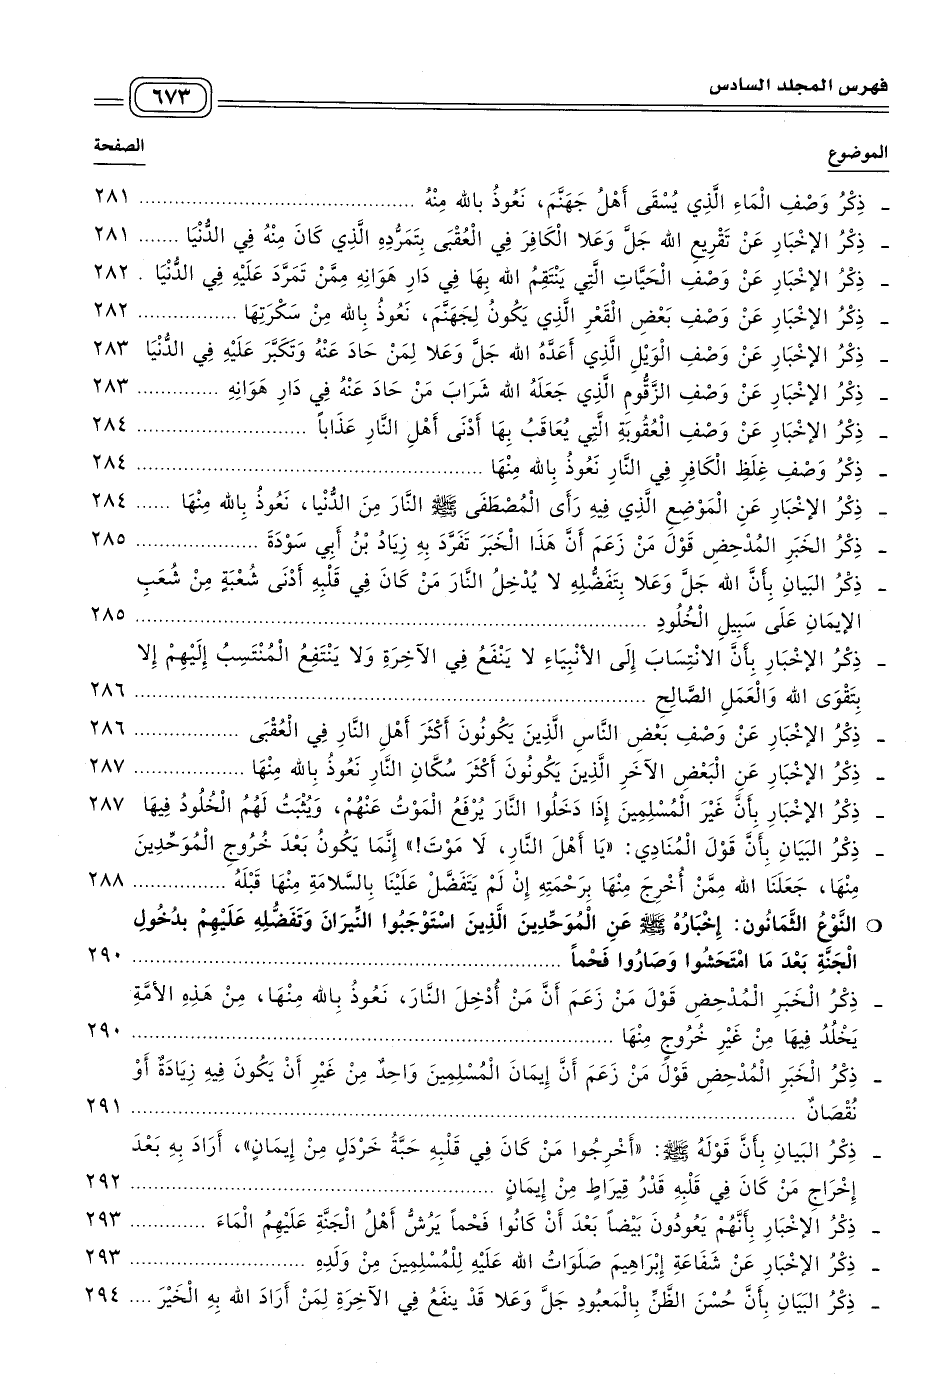 فهرس المجلد السادس ٦٧٣
الموضوع الصفحة
ـ ذِكْرُ وَصْفِ الْمَاءِ الَّذِي يُسْقَى أَهْلُ جَهَنَّمَ، نَعُوذُ بالله مِنْهُ ........ ٢٨١
ـ ذِكْرُ الإخْبَارِ عَنْ تَقْرِيعِ الله جَلَّ وَعَلا الْكَافِرَ فِي الْعُقْبَى بِتَمَرُّدِهِ الَّذِي كَانَ مِنْهُ فِي الدُّنْيَا ...... ٢٨١
ـ ذِكْرُ الإخْبَارِ عَنْ وَصْفِ الْحَيَّاتِ الَّتِي يَنْتَقِمُ الله بِهَا فِي دَارِ هَوَانِهِ مِمَّنْ تَمَرَّدَ عَلَيْهِ فِي الدُّنْيَا . ٢٨٢
ـ ذِكْرُ الإخْبَارِ عَنْ وَصْفِ بَعْضِ الْقَعْرِ الَّذِي يَكُونُ لِجَهَنَّمَ، نَعُوذُ بِالله مِنْ سَكْرَتِهَا ........ ٢٨٢
ـ ذِكْرُ الإخْبَارِ عَنْ وَصْفِ الْوَيْلِ الَّذِي أَعَدَّهُ الله جَلَّ وَعَلا لِمَنْ حَادَ عَنْهُ وَتَكَبَّرَ عَلَيْهِ فِي الدُّنْيَا ٢٨٣
ـ ذِكْرُ الإخْبَارِ عَنْ وَصْفِ الزَّقُّومِ الَّذِي جَعَلَهُ الله شَرَابَ مَنْ حَادَ عَنْهُ فِي دَارِ هَوَانِهِ ........ ٢٨٣
ـ ذِكْرُ الإخْبَارِ عَنْ وَصْفِ الْعُقُوبَةِ الَّتِي يُعَاقَبُ بِهَا أَدْنَى أَهْلِ النَّارِ عَذَاباً ........ ٢٨٤
ـ ذِكْرُ وَصْفِ غِلَظِ الْكَافِرِ فِي النَّارِ نَعُوذُ بِالله مِنْهَا ........ ٢٨٤
ـ ذِكْرُ الإخْبَارِ عَنِ الْمَوْضِعِ الَّذِي فِيهِ رَأَى الْمُصْطَفَى ﷺ النَّارَ مِنَ الدُّنْيا، نَعُوذُ بِالله مِنْهَا ...... ٢٨٤
ـ ذِكْرُ الخَبَرِ المُدْحِضِ قَوْلَ مَنْ زَعَمَ أَنَّ هَذَا الْخَبَرَ تَفَرَّدَ بِهِ زِيَادُ بْنُ أَبِي سَوْدَةَ ........ ٢٨٥
ـ ذِكْرُ البَيَانِ بِأَنَّ الله جَلَّ وَعَلا بِتَفَضُّلِهِ لا يُدْخِلُ النَّارَ مَنْ كَانَ فِي قَلْبِهِ أَدْنَى شُعْبَةٍ مِنْ شُعَبِ
الإيمَانِ عَلَى سَبِيلِ الْخُلُودِ ........ ٢٨٥
ـ ذِكْرُ الإخْبَارِ بِأَنَّ الانْتِسَابَ إِلَى الأنْبِيَاءِ لا يَنْفَعُ فِي الآخِرَةِ وَلا يَنْتَفِعُ الْمُنْتَسِبُ إلَيْهِمْ إلا
بِتَقْوَى الله وَالْعَمَلِ الصَّالِحِ ........ ٢٨٦
ـ ذِكْرُ الإخْبَارِ عَنْ وَصْفِ بَعْضِ النَّاسِ الَّذِينَ يَكُونُونَ أَكْثَرَ أَهْلِ النَّارِ فِي الْعُقْبَى ........ ٢٨٦
ـ ذِكْرُ الإخْبَارِ عَنِ الْبَعْضِ الآخَرِ الَّذِينَ يَكُونُونَ أَكْثَرَ سُكَّانِ النَّارِ نَعُوذُ بِالله مِنْهَا ........ ٢٨٧
ـ ذِكْرُ الإخْبَارِ بِأَنَّ غَيْرَ الْمُسْلِمِينَ إذَا دَخَلُوا النَّارَ يُرْفَعُ الْمَوْتُ عَنْهُمْ، وَيُثْبَتُ لَهُمُ الْخُلُودُ فِيهَا ٢٨٧
ـ ذِكْرُ البَيَانِ بِأَنَّ قَوْلَ الْمُنَادِي: «يَا أَهْلَ النَّارِ، لَا مَوْتَ!» إنَّمَا يَكُونُ بَعْدَ خُرُوجِ الْمُوَحِّدِينَ
مِنْهَا، جَعَلَنَا الله مِمَّنْ أُخْرِجَ مِنْهَا بِرَحْمَتِهِ إنْ لَمْ يَتَفَضَّلْ عَلَيْنَا بِالسَّلامَةِ مِنْهَا قَبْلَهُ ........ ٢٨٨
○ النَّوْعُ الثَّمَانُون: إخْبَارُهُ ﷺ عَنِ الْمُوَحِّدِينَ الَّذِينَ اسْتَوْجَبُوا النِّيرَانَ وَتَفَضُّلِهِ عَلَيْهِمْ بِدُخُولِ
الْجَنَّةِ بَعْدَ مَا امْتَحَشُوا وَصَارُوا فَحْماً ........ ٢٩٠
ـ ذِكْرُ الْخَبَرِ الْمُدْحِضِ قَوْلَ مَنْ زَعَمَ أَنَّ مَنْ أُدْخِلَ النَّارَ، نَعُوذُ بِالله مِنْهَا، مِنْ هَذِهِ الأمَّةِ
يَخْلُدُ فِيهَا مِنْ غَيْرِ خُرُوجٍ مِنْهَا ........ ٢٩٠
ـ ذِكْرُ الْخَبَرِ الْمُدْحِضِ قَوْلَ مَنْ زَعَمَ أَنَّ إيمَانَ الْمُسْلِمِينَ وَاحِدٌ مِنْ غَيْرِ أَنْ يَكُونَ فِيهِ زِيَادَةٌ أَوْ
نُقْصَانٌ ........ ٢٩١
ـ ذِكْرُ البَيَانِ بِأَنَّ قَوْلَهُ ﷺ: «أَخْرِجُوا مَنْ كَانَ فِي قَلْبِهِ حَبَّةُ خَرْدَلٍ مِنْ إيمَانٍ»، أَرَادَ بِهِ بَعْدَ
إخْرَاجِ مَنْ كَانَ فِي قَلْبِهِ قَدْرُ قِيرَاطٍ مِنْ إيمَانٍ ........ ٢٩٢
ـ ذِكْرُ الإخْبَارِ بِأَنَّهُمْ يَعُودُونَ بِيْضاً بَعْدَ أَنْ كَانُوا فَحْماً يَرُشُّ أَهْلُ الْجَنَّةِ عَلَيْهِمُ الْمَاءَ ........ ٢٩٣
ـ ذِكْرُ الإخْبَارِ عَنْ شَفَاعَةِ إبْرَاهِيمَ صَلَوَاتُ الله عَلَيْهِ لِلْمُسْلِمِينَ مِنْ وَلَدِهِ ........ ٢٩٣
ـ ذِكْرُ البَيَانِ بِأَنَّ حُسْنَ الظَّنِّ بِالْمَعْبُودِ جَلَّ وَعَلا قَدْ ينفَعُ فِي الآخِرَةِ لِمَنْ أَرَادَ الله بِهِ الْخَيْرَ .... ٢٩٤